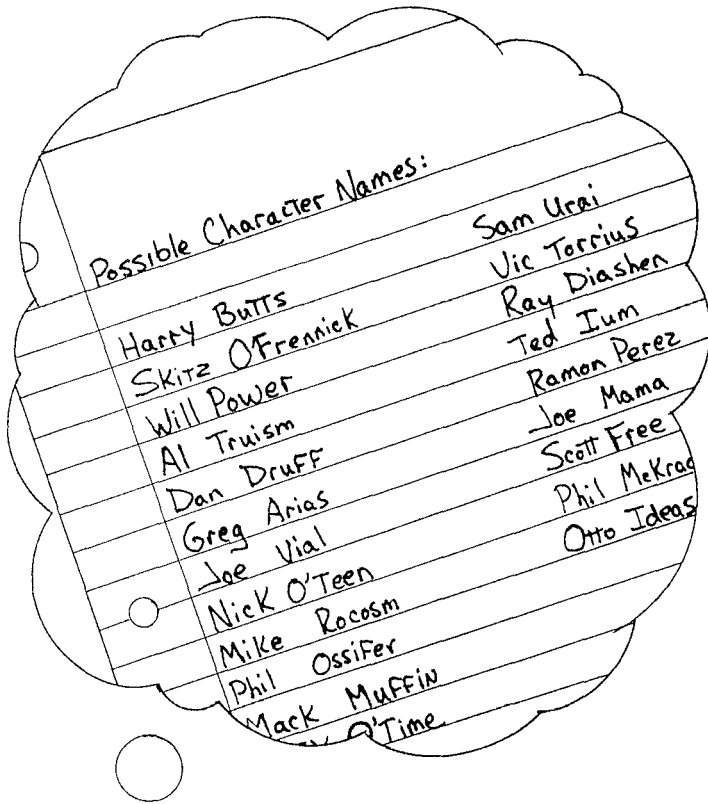 Possible Character Names:
Harry Butts
Skitz O'Frennick
Will Power
Al Truism
Dan Druff
Greg Arias
Joe Vial
Nick O'Teen
Mike Rocosm
Phil Ossifer
Mack Muffin
O'Time
Sam Urai
Vic Torrius
Ray Diashen
Ted Ium
Ramon Perez
Joe Mama
Scott Free
Phil McKrac
Otto Ideas